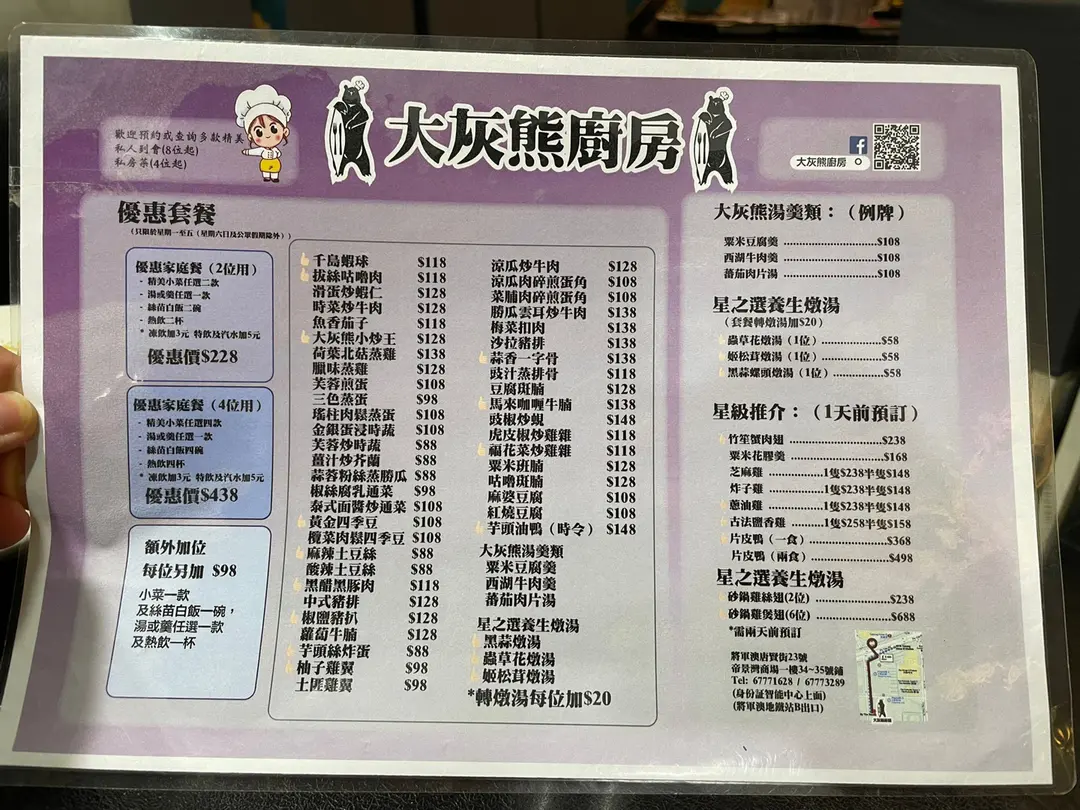 歡迎預約或查詢多款精美
私人到會(8位起)
私房菜(4位起)
大灰熊廚房
大灰熊廚房
優惠套餐
(只限於星期一至五(星期六日及公眾假期除外))
優惠家庭餐(2位用)
- 精美小菜任選二款
- 湯或羹任選一款
- 絲苗白飯二碗
- 熱飲二杯
* 凍飲加3元 特飲及汽水加5元
優惠價$228
優惠家庭餐(4位用)
- 精美小菜任選四款
- 湯或羹任選一款
- 絲苗白飯四碗
- 熱飲四杯
* 凍飲加3元 特飲及汽水加5元
優惠價$438
額外加位
每位另加 $98
小菜一款
及絲苗白飯一碗,
湯或羹任選一款
及熱飲一杯
千島蝦球 $118
拔絲咕嚕肉 $118
滑蛋炒蝦仁 $128
時菜炒牛肉 $128
魚香茄子 $118
大灰熊小炒王 $128
荷葉北菇蒸雞 $138
臘味蒸雞 $128
芙蓉煎蛋 $108
三色蒸蛋 $98
瑤柱肉鬆蒸蛋 $108
金銀蛋浸時蔬 $108
芙蓉炒時蔬 $88
薑汁炒芥蘭 $88
蒜蓉粉絲蒸勝瓜 $88
椒絲腐乳通菜 $98
泰式面醬炒通菜 $108
黃金四季豆 $108
欖菜肉鬆四季豆 $108
麻辣土豆絲 $88
酸辣土豆絲 $88
黑醋黑豚肉 $118
中式豬排 $128
椒鹽豬扒 $128
蘿蔔牛腩 $128
芋頭絲炸蛋 $88
柚子雞翼 $98
土匪雞翼 $98
涼瓜炒牛肉 $128
涼瓜肉碎煎蛋角 $108
菜脯肉碎煎蛋角 $108
勝瓜雲耳炒牛肉 $138
梅菜扣肉 $138
沙拉豬排 $138
蒜香一字骨 $138
豉汁蒸排骨 $118
豆腐斑腩 $128
馬來咖喱牛腩 $138
豉椒炒蜆 $148
虎皮椒炒雞雜 $118
福花菜炒雞雜 $118
粟米斑腩 $128
咕嚕斑腩 $128
麻婆豆腐 $108
紅燒豆腐 $108
芋頭油鴨(時令) $148
大灰熊湯羹類
粟米豆腐羹
西湖牛肉羹
蕃茄肉片湯
星之選養生燉湯
黑蒜燉湯
蟲草花燉湯
姬松茸燉湯
*轉燉湯每位加$20
大灰熊湯羹類:(例牌)
粟米豆腐羹 ........................$108
西湖牛肉羹 ........................$108
蕃茄肉片湯 ........................$108
星之選養生燉湯
(套餐轉燉湯加$20)
蟲草花燉湯(1位) ................$58
姬松茸燉湯(1位) ................$58
黑蒜螺頭燉湯(1位) .............$58
星級推介:(1天前預訂)
竹笙蟹肉翅 ........................$238
粟米花膠羹 ........................$168
芝麻雞 ................1隻$238半隻$148
炸子雞 ................1隻$238半隻$148
蔥油雞 ................1隻$238半隻$148
古法鹽香雞 ........1隻$258半隻$158
片皮鴨(一食) .....................$368
片皮鴨(兩食) .....................$498
星之選養生燉湯
砂鍋雞絲翅(2位) ..................$238
砂鍋雞煲翅(6位) ..................$688
*需兩天前預訂
將軍澳唐賢街23號
帝景灣商場一樓34~35號鋪
Tel: 67771628 / 67773289
(身份証智能中心上面)
(將軍澳地鐵站B出口)